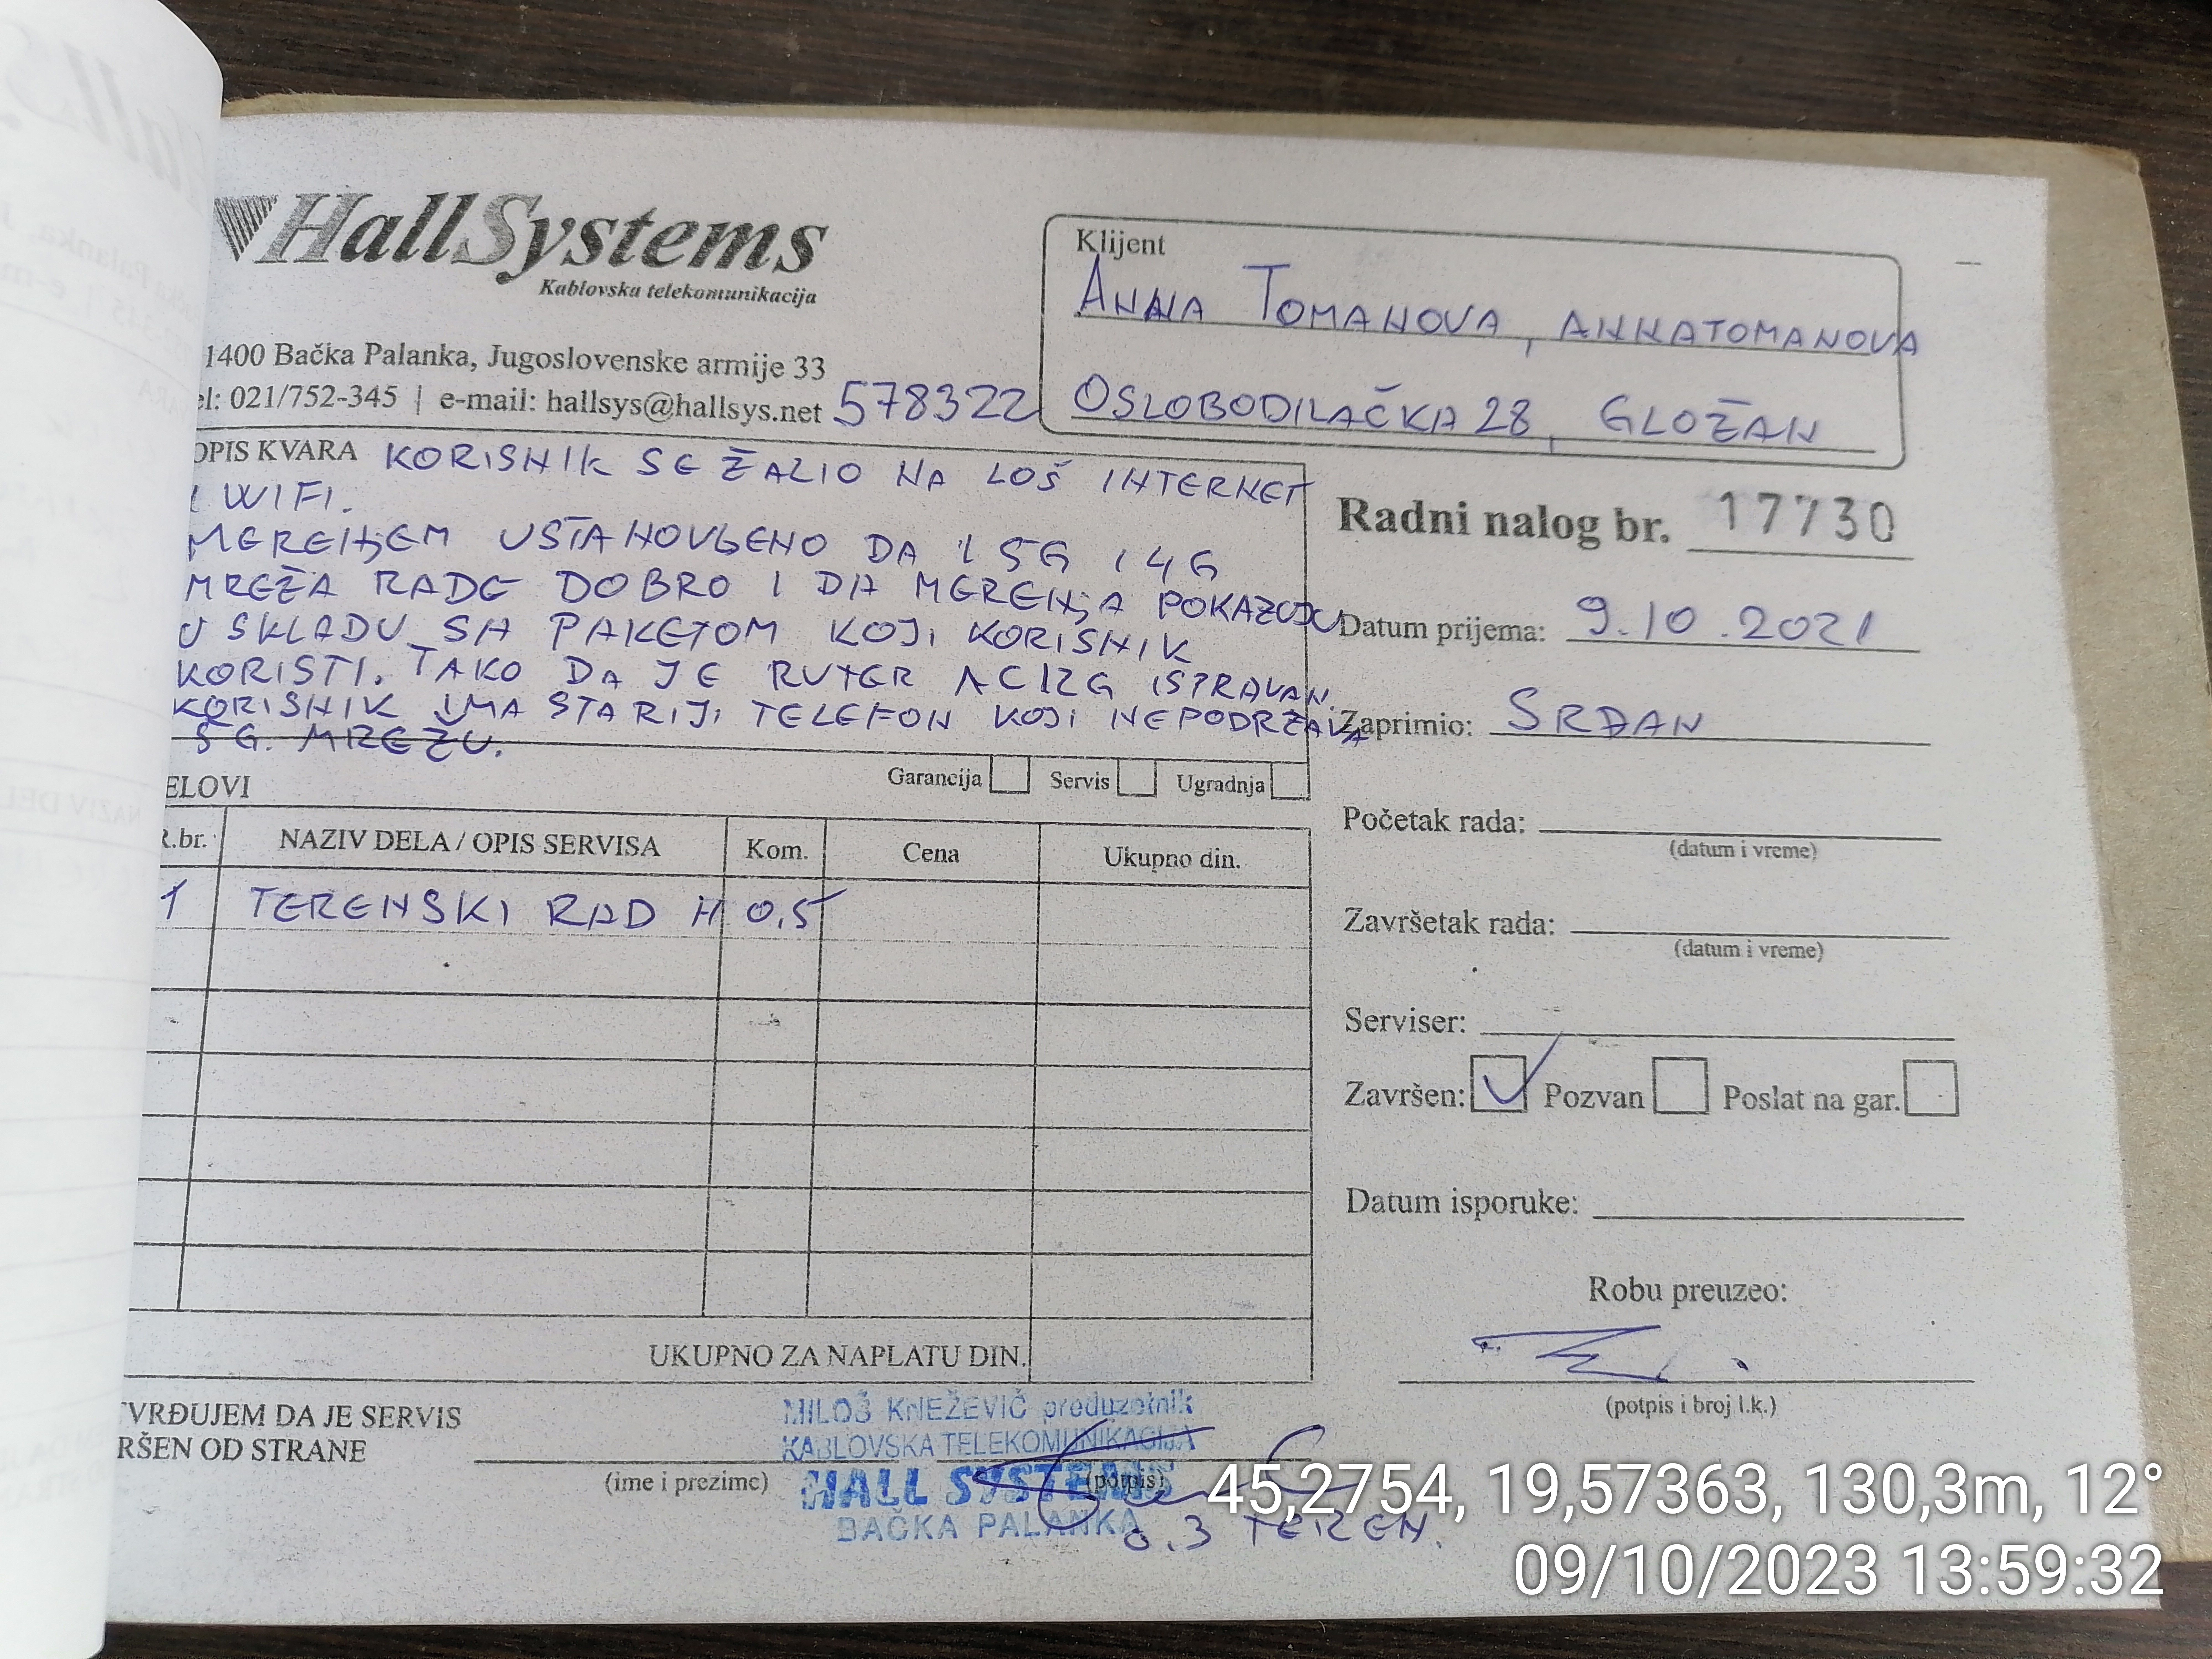 HallSystems
Kablovska telekomunikacija
1400 Bačka Palanka, Jugoslovenske armije 33
el: 021/752-345 | e-mail: hallsys@hallsys.net 578322
Klijent
ANNA TOMANOVA, ANNATOMANOVA
OSLOBODILAČKA 28, GLOŽAN
OPIS KVARA KORISNIK SE ŽALIO NA LOŠ INTERNET
I WIFI.
MERENJEM USTANOVLJENO DA I 5G I 4G
MREŽA RADE DOBRO I DA MERENJA POKAZUJU
U SKLADU SA PAKETOM KOJI KORISNIK
KORISTI. TAKO DA JE RUTER AC12G ISPRAVAN.
KORISNIK IMA STARIJI TELEFON KOJI NEPODRŽAVA
5G. MREŽU.
Radni nalog br. 17730
Datum prijema: 9.10.2021
Zaprimio: SRĐAN
Početak rada:
(datum i vreme)
Završetak rada:
(datum i vreme)
Serviser:
Završen: Pozvan Poslat na gar.
Datum isporuke:
Robu preuzeo:
(potpis i broj l.k.)
Garancija Servis Ugradnja
ELOVI
R.br. NAZIV DELA / OPIS SERVISA Kom. Cena Ukupno din.
1 TERENSKI RAD H 0,5
UKUPNO ZA NAPLATU DIN.
TVRĐUJEM DA JE SERVIS
RŠEN OD STRANE
(ime i prezime)
(potpis)
MILOŠ KNEŽEVIĆ preduzetnik
KABLOVSKA TELEKOMUNIKACIJA
HALL SYSTEMS
BAČKA PALANKA
0.3 TEREN.
45,2754, 19,57363, 130,3m, 12°
09/10/2023 13:59:32